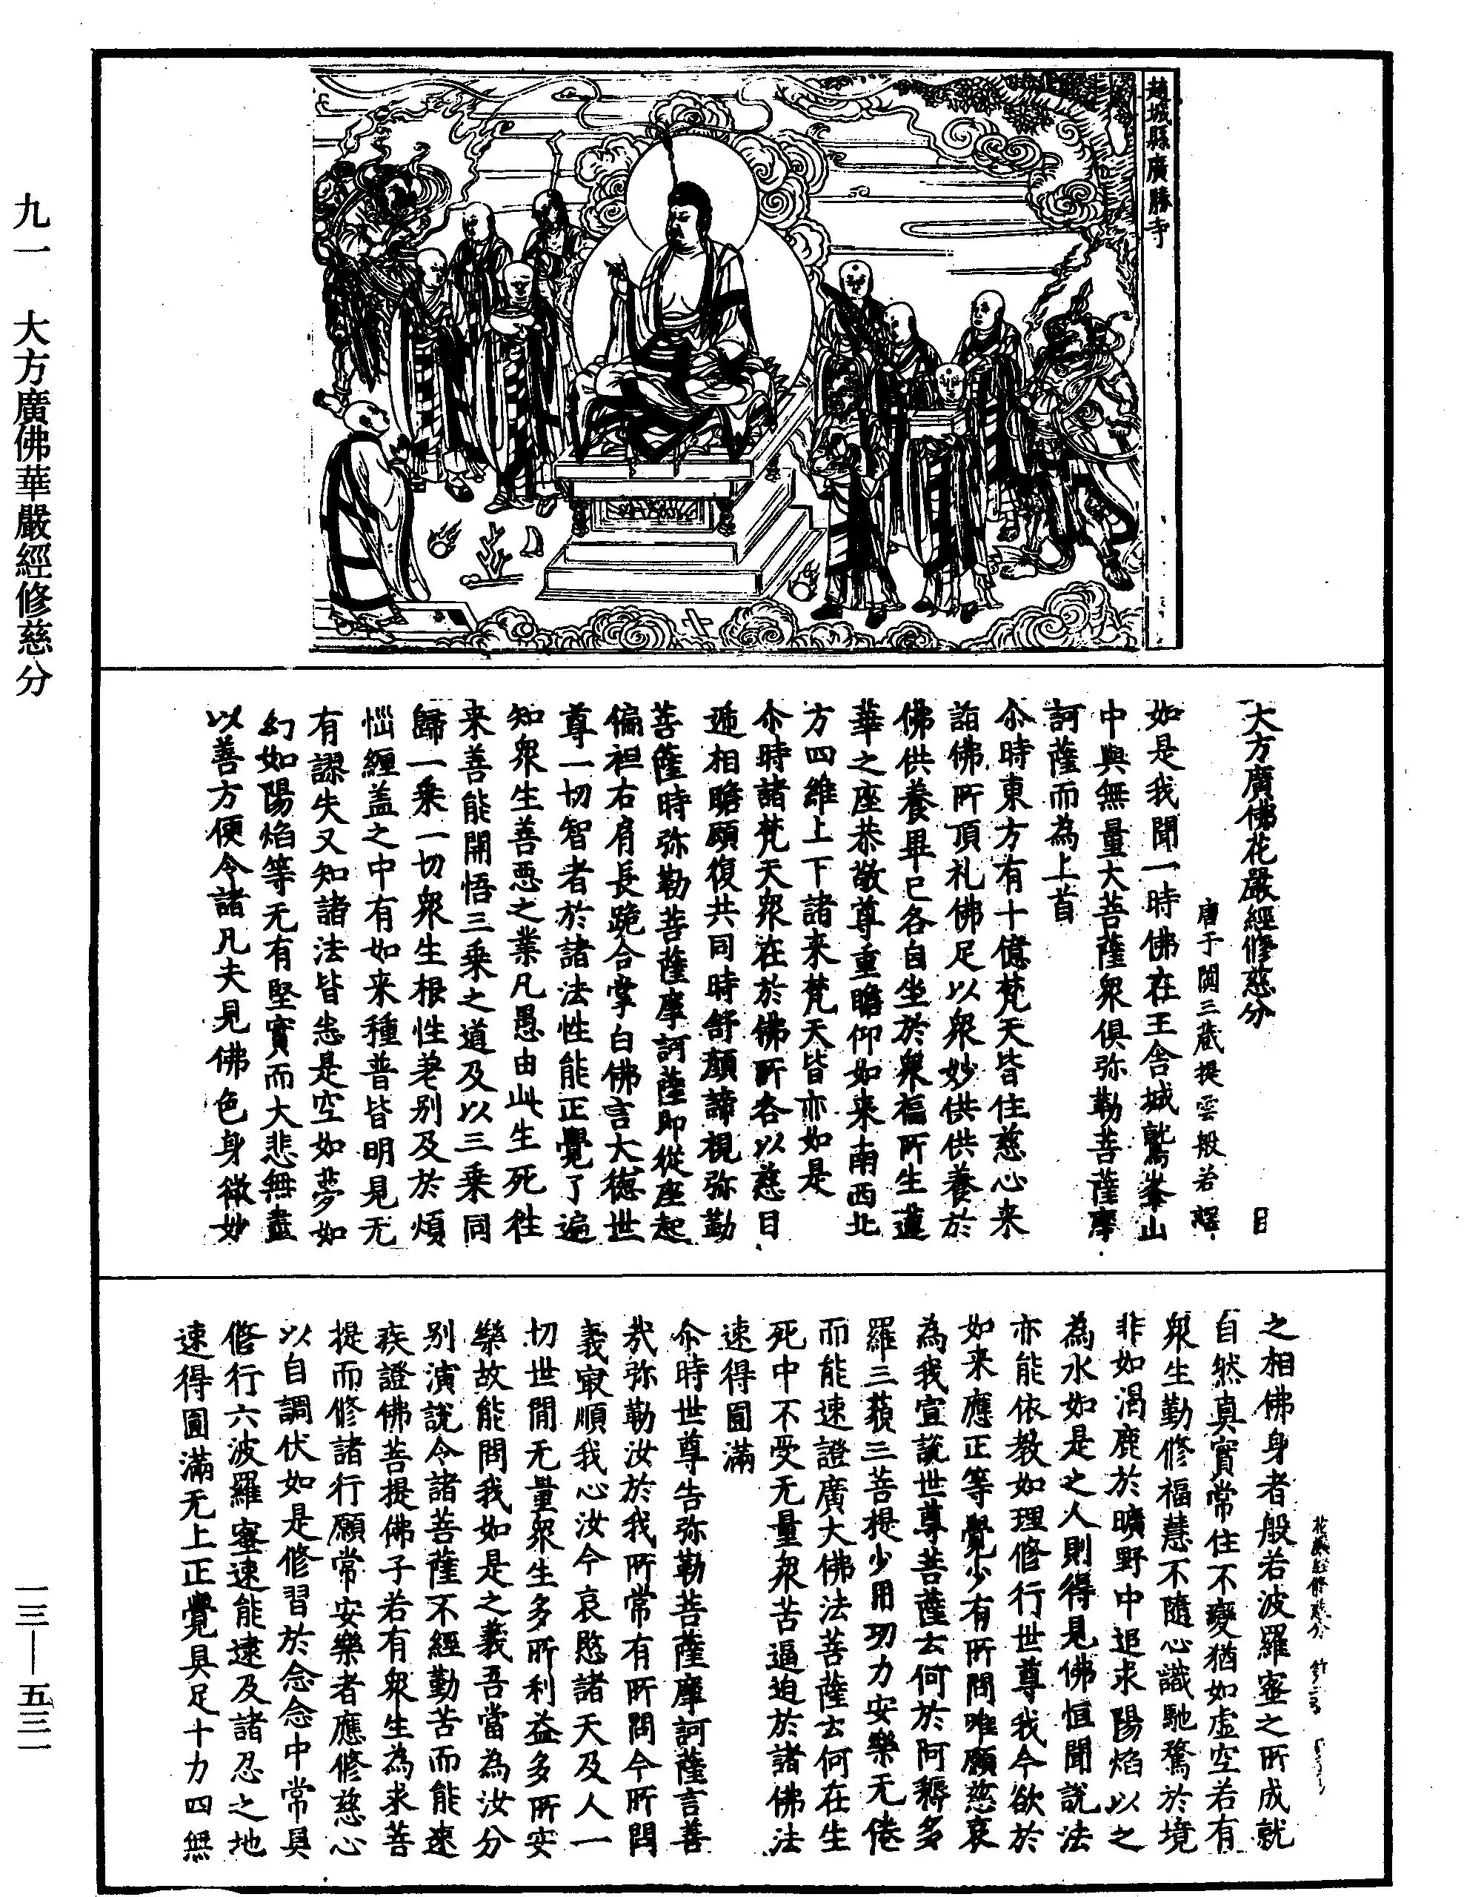 九一　大方廣佛華嚴經修慈分
一三—五三一
趙城縣廣勝寺
大方廣佛花嚴經修慈分　目
唐于闐三藏提雲般若　譯
如是我聞一時佛在王舍城鷲峯山
中與無量大菩薩衆俱弥勒菩薩摩
訶薩而為上首
尒時東方有十億梵天皆住慈心来
詣佛所頂礼佛足以衆妙供供養於
佛供養畢已各自坐於衆福所生蓮
華之座恭敬尊重瞻仰如来南西北
方四維上下諸来梵天皆亦如是
尒時諸梵天衆在於佛所各以慈目
遞相瞻顧復共同時舒顏諦視弥勒
菩薩時弥勒菩薩摩訶薩即從座起
偏袒右肩長跪合掌白佛言大德世
尊一切智者於諸法性能正覺了遍
知衆生善惡之業凡愚由此生死往
来善能開悟三乗之道及以三乗同
歸一乗一切衆生根性差别及於煩
惱纏盖之中有如来種普皆明見无
有謬失又知諸法皆悉是空如夢如
幻如陽焰等无有堅實而大悲無盡
以善方便令諸凡夫見佛色身微妙
之相佛身者般若波羅蜜之所成就
自然真實常住不變猶如虚空若有
衆生勤修福慧不隨心識馳騖於境
非如渴鹿於曠野中追求陽焰以之
為水如是之人則得見佛恒聞說法
亦能依教如理修行世尊我今欲於
如来應正等覺少有所問唯願慈哀
為我宣說世尊菩薩云何於阿耨多
羅三藐三菩提少用功力安樂无倦
而能速證廣大佛法菩薩云何在生
死中不受无量衆苦逼迫於諸佛法
速得圓滿
尒時世尊告弥勒菩薩摩訶薩言善
哉弥勒汝於我所常有所問今所問
義冣順我心汝今哀愍諸天及人一
切世間无量衆生多所利益多所安
樂故能問我如是之義吾當為汝分
别演說令諸菩薩不經勤苦而能速
疾證佛菩提佛子若有衆生為求菩
提而修諸行願常安樂者應修慈心
以自調伏如是修習於念念中常具
修行六波羅蜜速能逮及諸忍之地
速得圓滿无上正覺具足十力四無
花嚴經修慈分